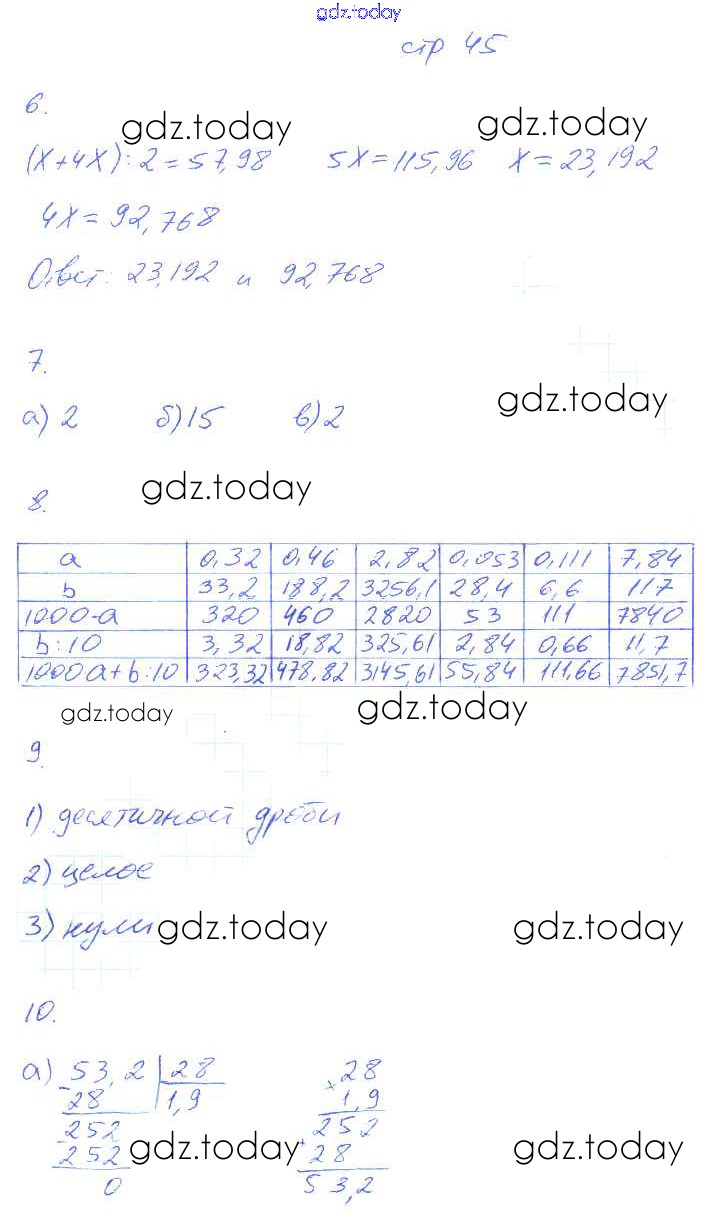 gdz.today
стр 45
6.
gdz.today gdz.today
(x+4x):2=57,98 5x=115,96 x=23,192
4x=92,768
Ответ: 23,192 и 92,768
7.
а) 2 б) 15 в) 2
gdz.today
gdz.today
8.
a 0,32 0,46 2,82 0,053 0,111 7,84
b 33,2 188,2 3256,1 28,4 6,6 117
1000·a 320 460 2820 53 111 7840
b:10 3,32 18,82 325,61 2,84 0,66 11,7
1000a+b:10 323,32 478,82 3145,61 55,84 111,66 7851,7
gdz.today gdz.today
9.
1) десятичной дроби
2) целое
3) нули gdz.today gdz.today
10.
а) 53,2 28 28
- 28 1,9 × 1,9
- 252 252
252 gdz.today + 28 gdz.today
0 53,2